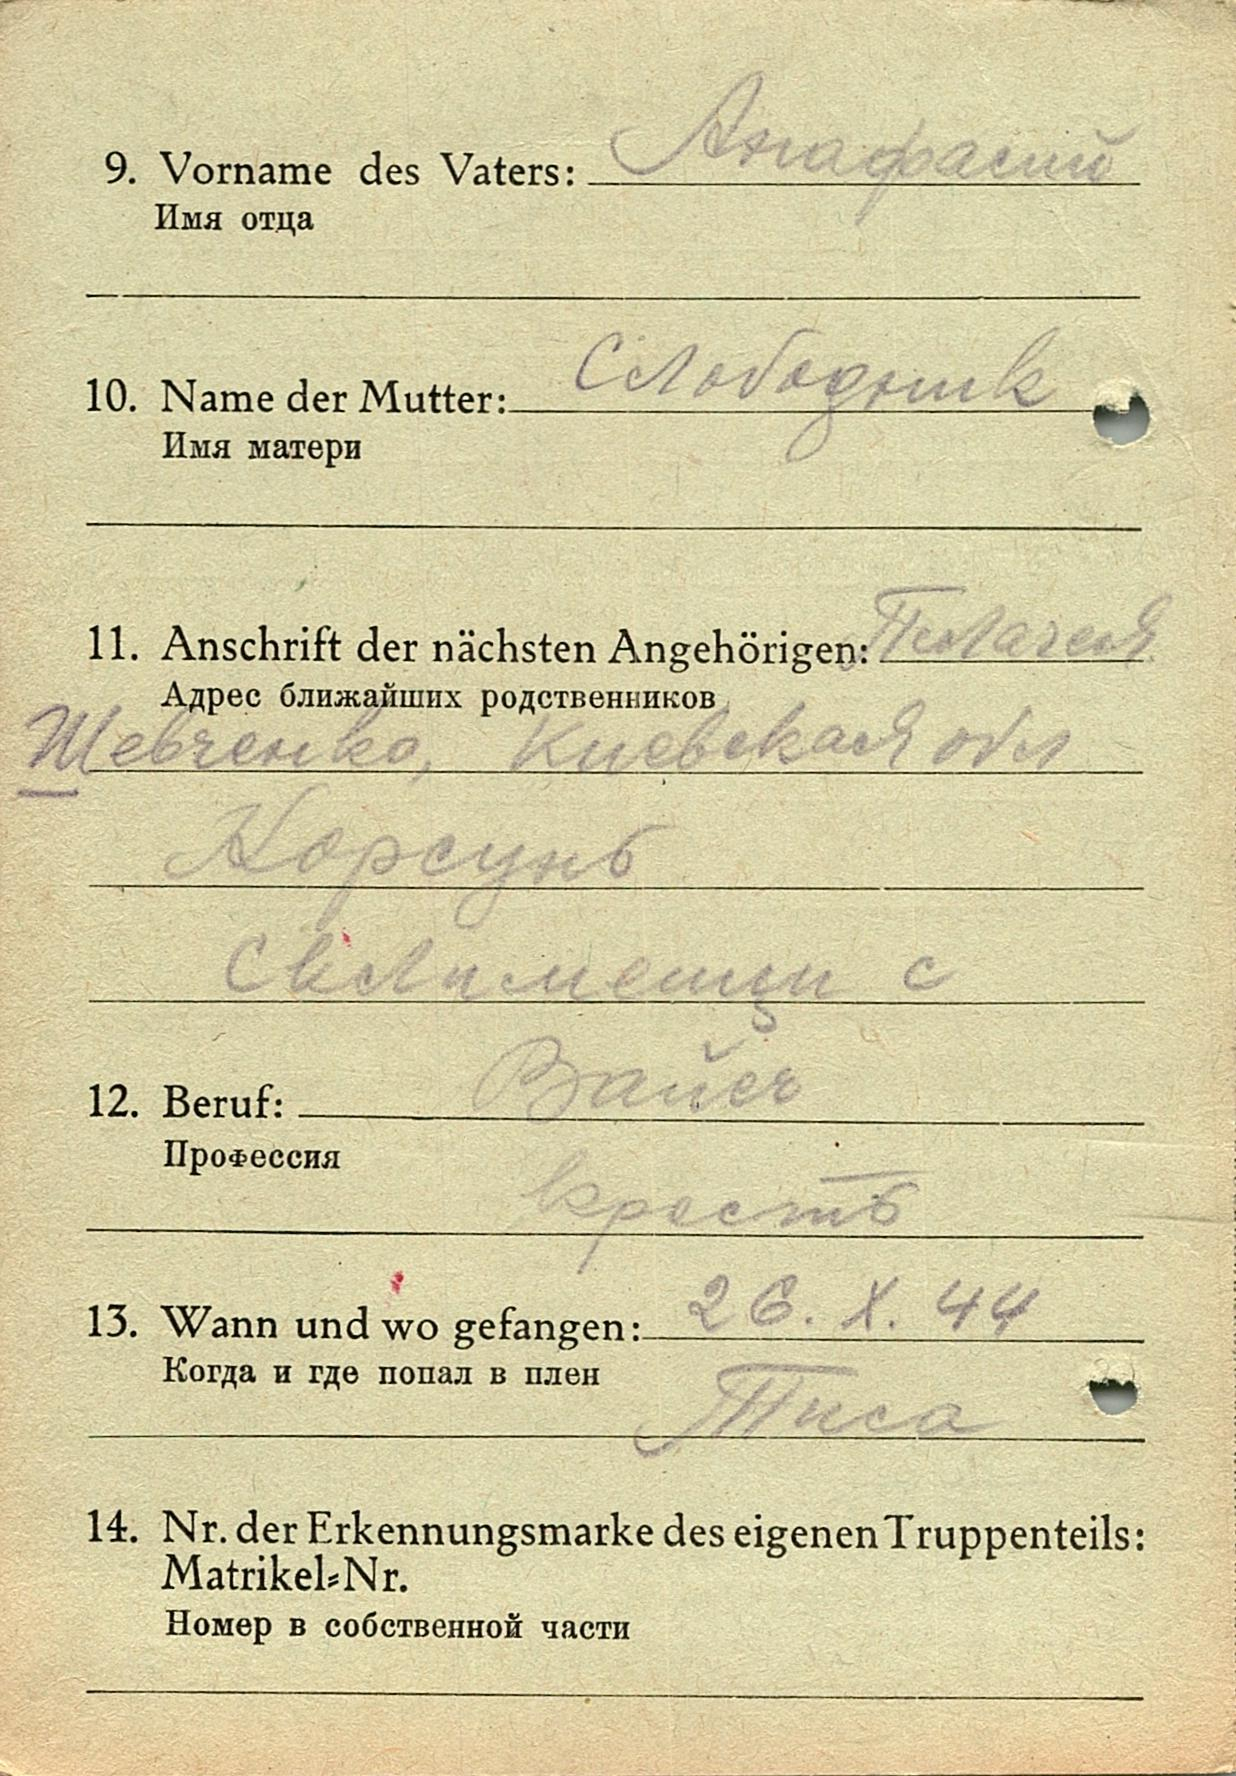 9. Vorname des Vaters: Анафасий
Имя отца
10. Name der Mutter: Слободник
Имя матери
11. Anschrift der nächsten Angehörigen: Пилагея
Адрес ближайших родственников
Шевченко, Киевская обл
Корсунь
с
12. Beruf:
Профессия
крость
13. Wann und wo gefangen: 26. X. 44
Когда и где попал в плен
Тиса
14. Nr. der Erkennungsmarke des eigenen Truppenteils:
Matrikel-Nr.
Номер в собственной части